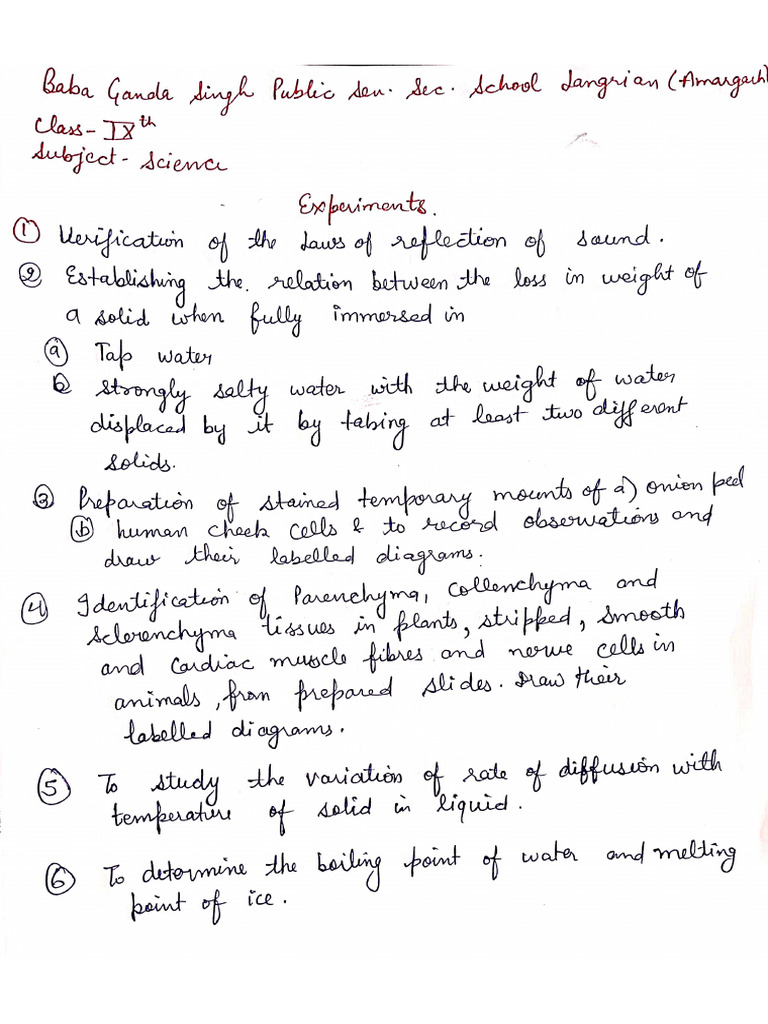 Baba Ganda Singh Public Sen. Sec. School Jangrian (Amargarh)
Class - IXth
Subject - Science
Experiments.
① Verification of the Laws of reflection of sound.
② Establishing the relation between the loss in weight of
a solid when fully immersed in
ⓐ Tap water
ⓑ Strongly salty water with the weight of water
displaced by it by tabing at least two different
solids.
③ Preparation of stained temporary mounts of a) onion peel
ⓑ human cheek cells & to record observations and
draw their labelled diagrams.
④ Identification of Parenchyma, Collenchyma and
Sclerenchyma tissues in plants, stripped, smooth
and Cardiac muscle fibres and nerve cells in
animals, from prepared slides. Draw their
labelled diagrams.
⑤ To study the variation of rate of diffusion with
temperature of solid in liquid.
⑥ To determine the boiling point of water and melting
point of ice.